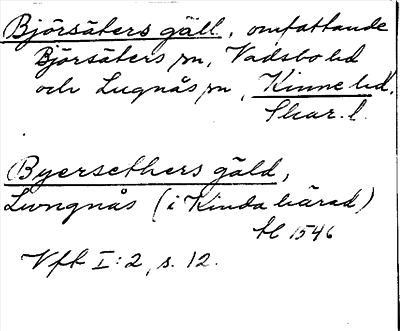 Björsäters gäll, omfattande
Björsäters sn, Vadsbo hd
och Lugnås sn, Kinne hd,
Skar. l.
Byersethers gäld,
Lwngnås (i Kinda härad)
tl 1546
Vfb I:2, s. 12.